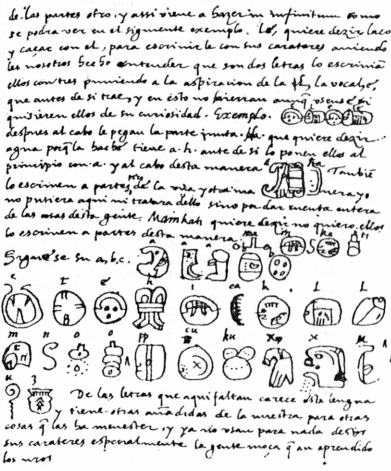 de las partes otro, y assi viene a hazer in infinitum como
se podra ver en el siguiente exemplo. Lé, quiere dezir laço
y caçar con el, para escriuirle con sus carateres auiendo
les nosotros hecho entender que son dos letras lo escriuiã
ellos con tres puniendo a la aspiracion de la l, la vocal é,
que antes de si trae, y en esto no hierran aunq̃ usense, si
quisieren ellos de su curiosidad. Exemplo.
despues al cabo le pegan la parte junta. Ha que quiere dezir
agua porq̃ la haché tiene a.h. ante de si lo ponen ellos al
principio con .a. y al cabo desta manera a ha Tambiẽ
lo escriuen a partes de la vna y otra ma nera yo
no pusiera aqui ni tratara dello sino por dar cuenta entera
de las cosas desta gente. Mainkati quiere dezir no quiero, ellos
lo escriuen a partes desta manera. ma i n ka ti
Siguese su a, b, c. a a a b b
c t é h i ca k l l
m n o o pp cu ku x x u
u z
De las letras que aqui faltan carece esta lengua
y tiene otras añadidas de la nuestra para otras
cosas q̃ las ha menester, y ya no usan para nada destos
sus carateres especialmente la gente moça q̃ an aprendido
los nros